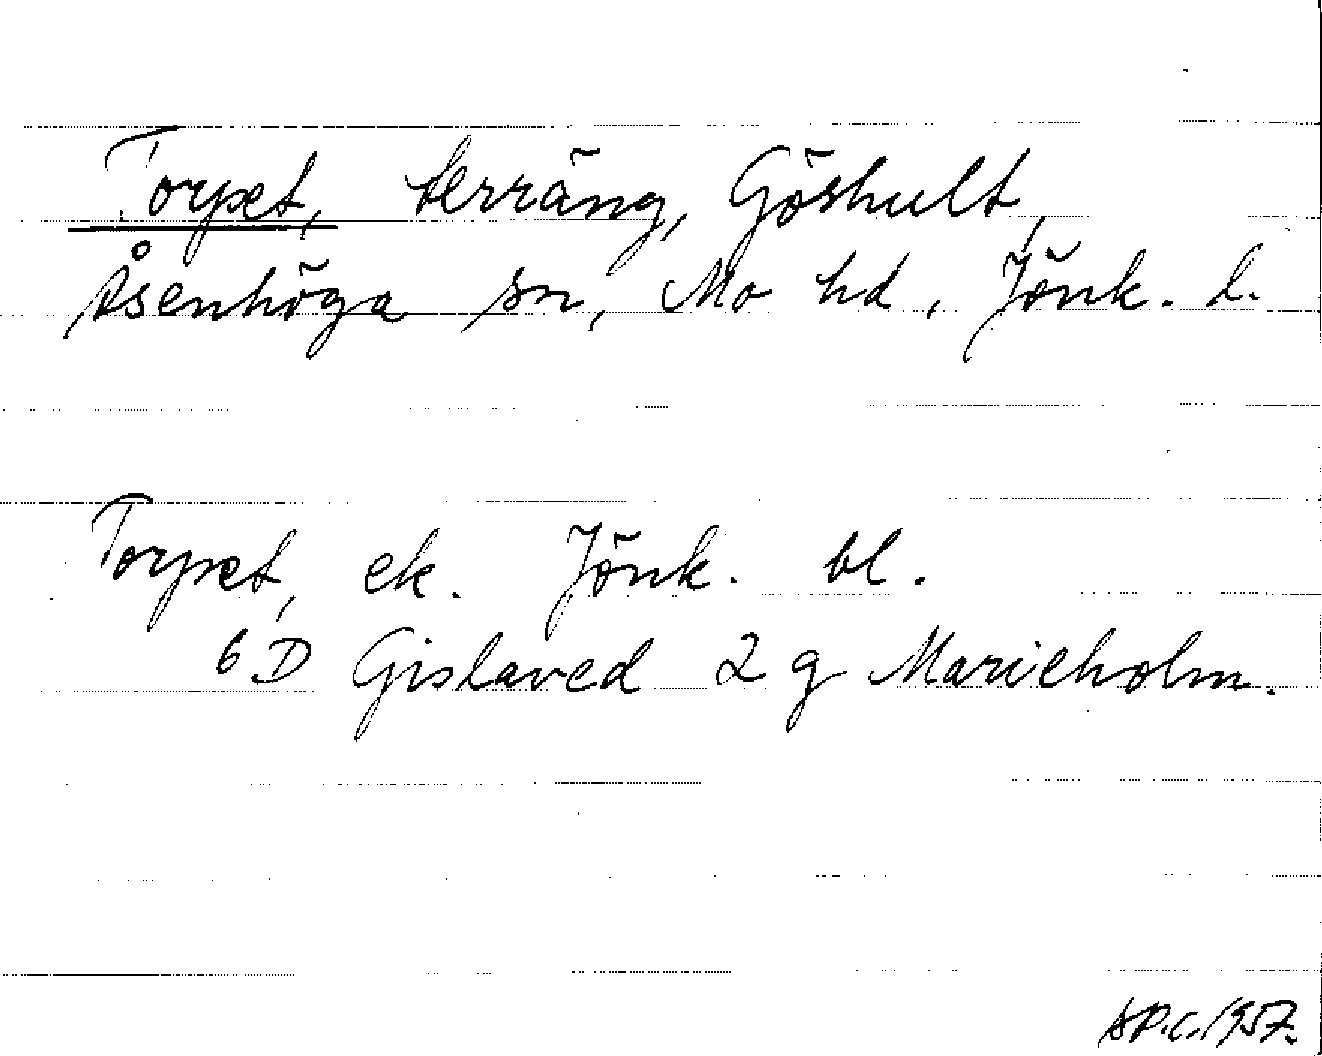 Torpet, terräng, Göshult,
Åsenhöga sn, Mo hd, Jönk. l.
Torpet, ek. Jönk. bl.
6 D Gislaved 2 g Marieholm.
1957.